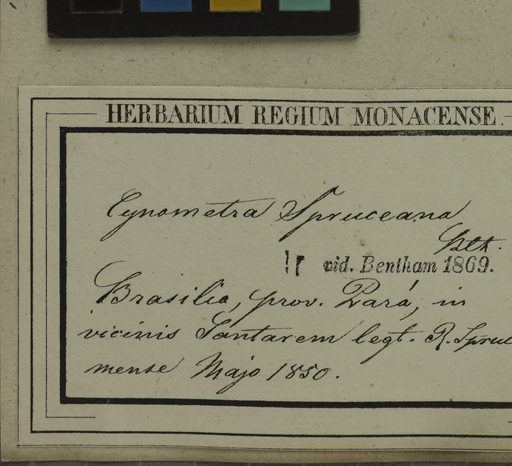 HERBARIUM REGIUM MONACENSE.
Cynometra Spruceana
Bth.
vid. Bentham 1869.
Brasilia, prov. Pará, in
vicinis Santarem legt. R. Spruc
mense Majo 1850.